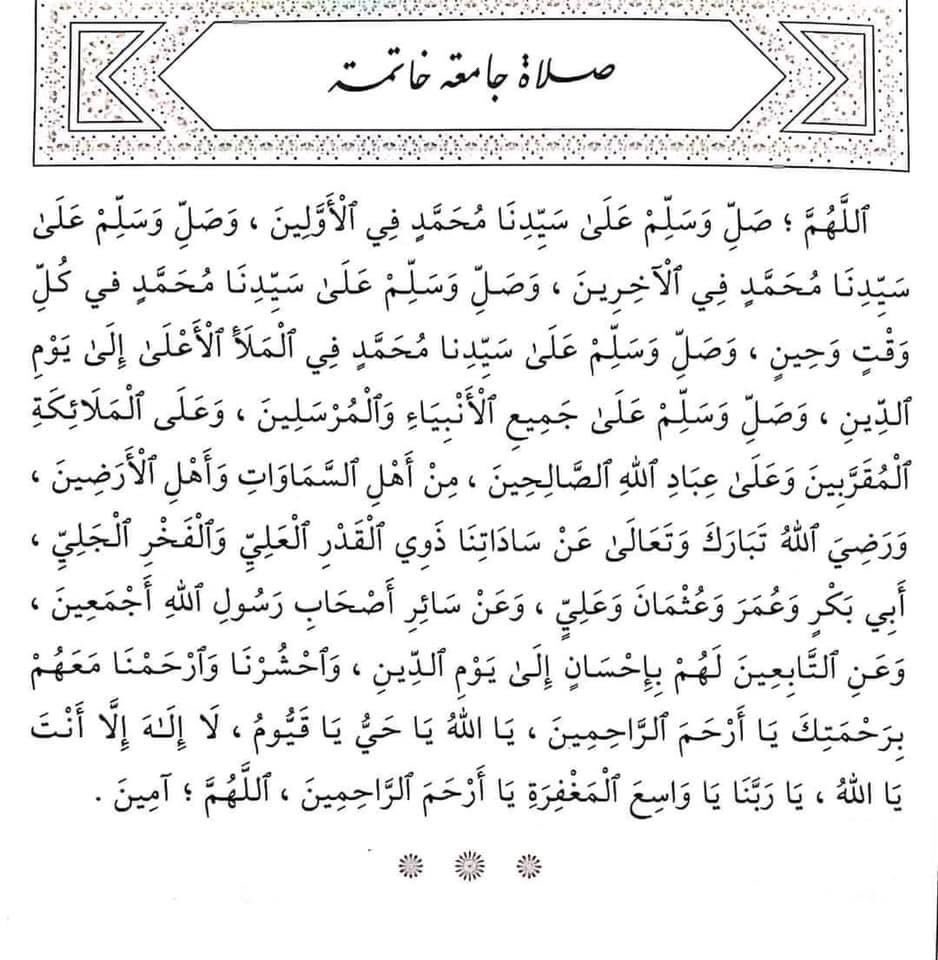 صلاة جامعة خاتمة
ٱللَّهُمَّ ؛ صَلِّ وَسَلِّمْ عَلَىٰ سَيِّدِنَا مُحَمَّدٍ فِي ٱلْأَوَّلِينَ ، وَصَلِّ وَسَلِّمْ عَلَىٰ
سَيِّدِنَا مُحَمَّدٍ فِي ٱلْآخِرِينَ ، وَصَلِّ وَسَلِّمْ عَلَىٰ سَيِّدِنَا مُحَمَّدٍ في كُلِّ
وَقْتٍ وَحِينٍ ، وَصَلِّ وَسَلِّمْ عَلَىٰ سَيِّدِنا مُحَمَّدٍ فِي ٱلْمَلَأِ ٱلْأَعْلَىٰ إِلَىٰ يَوْمِ
ٱلدِّينِ ، وَصَلِّ وَسَلِّمْ عَلَىٰ جَمِيعِ ٱلْأَنْبِيَاءِ وَٱلْمُرْسَلِينَ ، وَعَلَى ٱلْمَلَائِكَةِ
ٱلْمُقَرَّبِينَ وَعَلَىٰ عِبَادِ ٱللهِ ٱلصَّالِحِينَ ، مِنْ أَهْلِ ٱلسَّمَاوَاتِ وَأَهْلِ ٱلْأَرَضِينَ ،
وَرَضِيَ ٱللهُ تَبَارَكَ وَتَعَالَىٰ عَنْ سَادَاتِنَا ذَوِي ٱلْقَدْرِ ٱلْعَلِيِّ وَٱلْفَخْرِ ٱلْجَلِيِّ ،
أَبِي بَكْرٍ وَعُمَرَ وَعُثْمَانَ وَعَلِيٍّ ، وَعَنْ سَائِرِ أَصْحَابِ رَسُولِ ٱللهِ أَجْمَعِينَ ،
وَعَنِ ٱلتَّابِعِينَ لَهُمْ بِإِحْسَانٍ إِلَىٰ يَوْمِ ٱلدِّينِ ، وَٱحْشُرْنَا وَٱرْحَمْنَا مَعَهُمْ
بِرَحْمَتِكَ يَا أَرْحَمَ ٱلرَّاحِمِينَ ، يَا اللهُ يَا حَيُّ يَا قَيُّومُ ، لَا إِلَـٰهَ إِلَّا أَنْتَ
يَا اللهُ ، يَا رَبَّنَا يَا وَاسِعَ ٱلْمَغْفِرَةِ يَا أَرْحَمَ ٱلرَّاحِمِينَ ، ٱللَّهُمَّ ؛ آمِينَ .